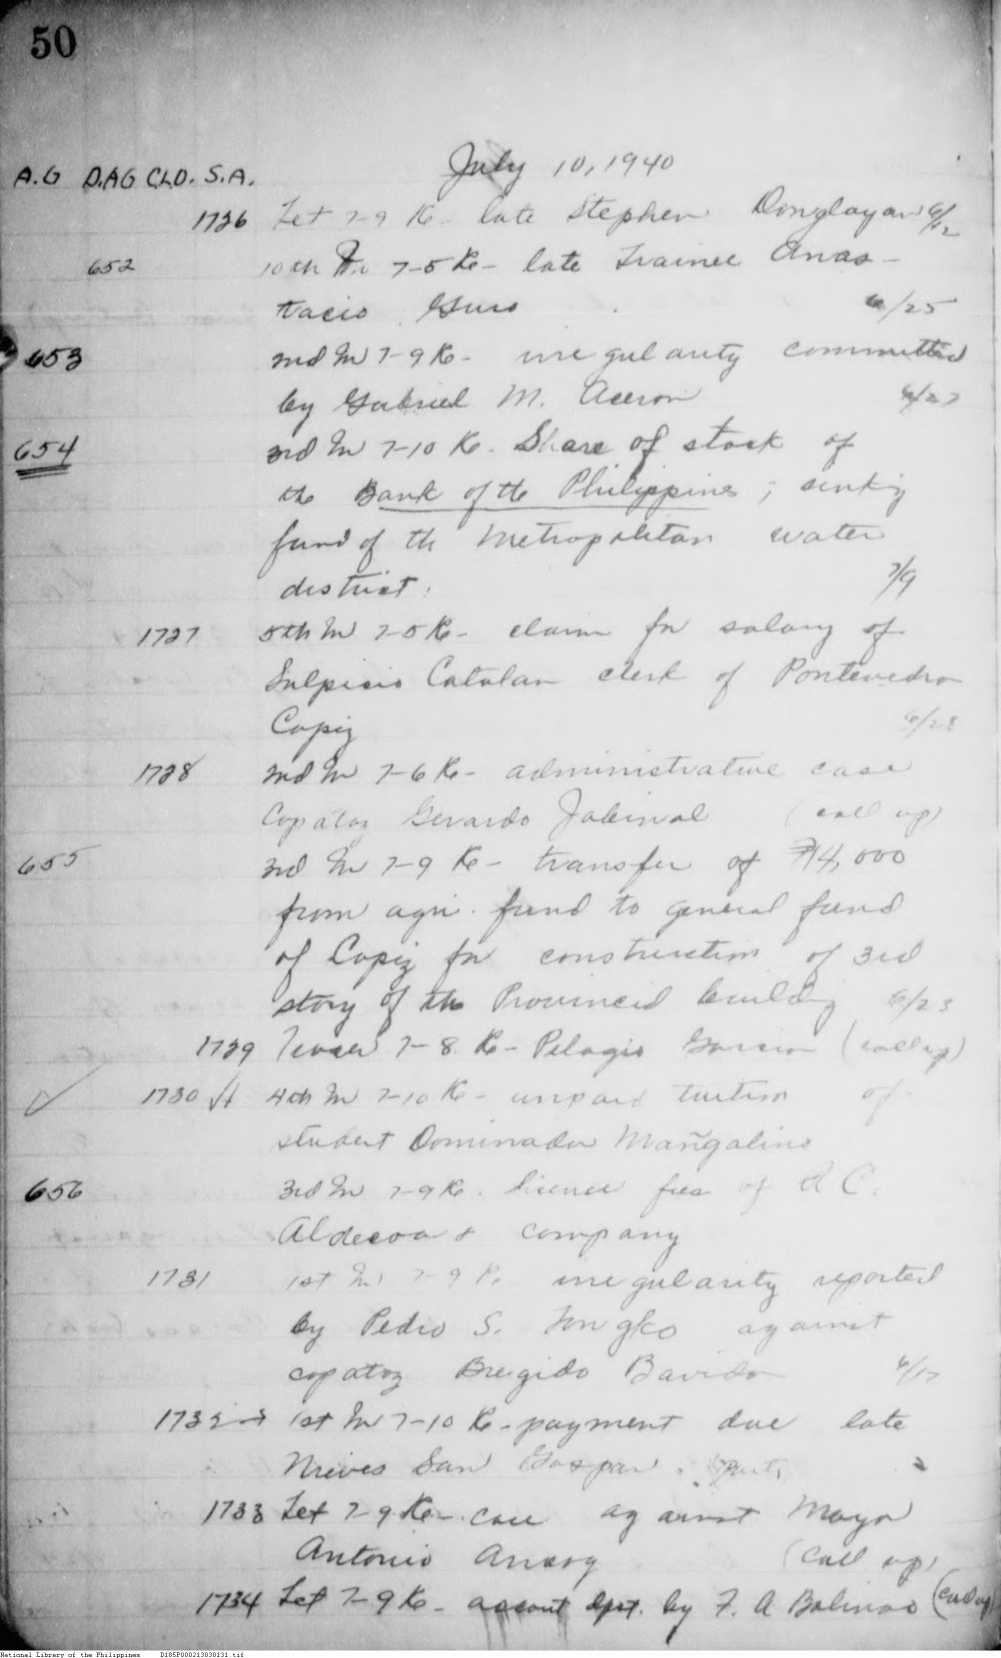 50
July 10, 1940
A.G D.AG CLD. S.A.
1726 Let 7-9 Re- late Stephen Donglayan 6/12
652 10th In 7-5 Re- late Trainee Anas-
tacio Guro 6/25
653 2nd In 7-9 Re- irregularity committed
by Gabriel M. Aceron 6/27
654 3rd In 7-10 Re. Share of stock of
the Bank of the Philippines; sinking
fund of the Metropolitan water
district. 7/9
1727 5th In 7-5 Re- claim for salary of
Sulpicio Catalan clerk of Pontevedra
Capiz 6/28
1728 2nd In 7-6 Re- administrative case
Copatoz Gerardo Jabinal (call up)
655 3rd In 7-9 Re- transfer of ₱14,000
from agri. fund to general fund
of Capiz for construction of 3rd
story of the Provincial building 6/23
1729 7-8 Re- Pelagio (call up)
1730 4th In 7-10 Re- unpaid tuition of
student Dominador Mañgalino
656 3rd In 7-9 Re. license fees of A C.
Aldecoa & company
1731 1st In 7-9 Re irregularity reported
by Pedro S. Tongko against
copatoz Bregido 6/17
1732 1st In 7-10 Re- payment due late
Nieves San Gaspar.
1733 Let 7-9 Re- case against Mayor
Antonio (call up)
1734 Let 7-9 Re- account dpt. by F. A Bolinao (call up)
National Library of the Philippines D185P000213030131.tif